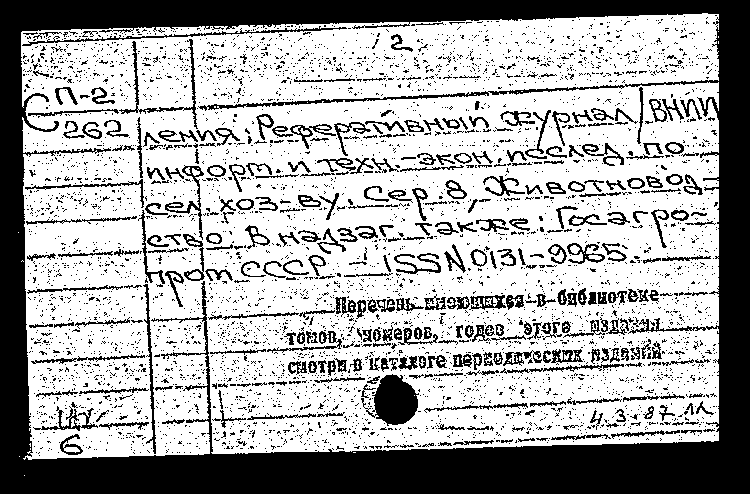 2
П-2
262
ления; Реферативный журнал / ВНИИ
информ. и техн.-экон. исслед. по
сел. хоз-ву. Сер. 8, Животновод-
ство; В надзаг. также: Госагро-
пром СССР. - ISSN 0131-9965.
Перечень имеющихся в библиотеке
томов, номеров, годов этого издания
смотри в каталоге периодических изданий
6
4.3.87